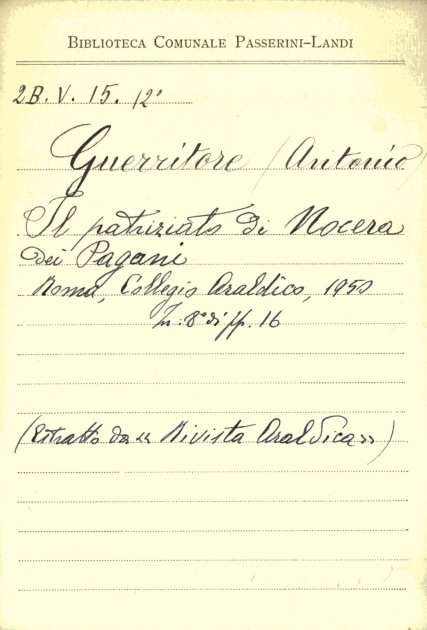 BIBLIOTECA COMUNALE PASSERINI-LANDI
2B. V. 15. 12°
Guerritore (Antonio)
Il patriziato di Nocera
dei Pagani
Roma, Collegio Araldico, 1950
In: 8° di pp. 16
(Estratto da « Rivista Araldica »)